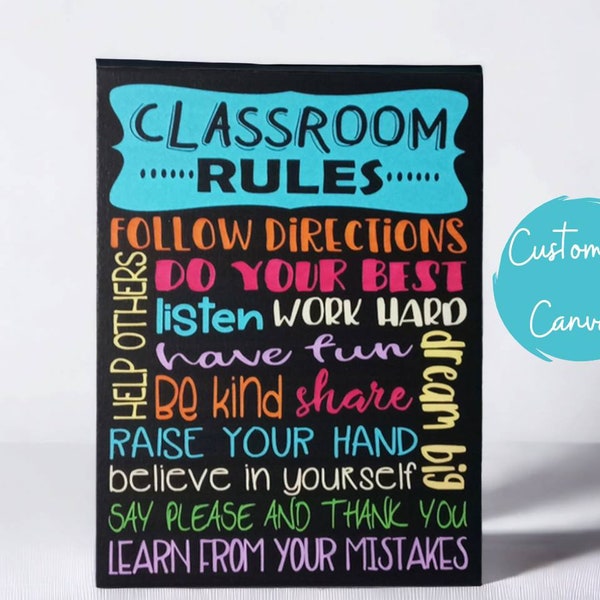 CLASSROOM
RULES
FOLLOW DIRECTIONS
HELP OTHERS
DO YOUR BEST
listen WORK HARD
have fun
Be kind share
dream big
RAISE YOUR HAND
believe in yourself
SAY PLEASE AND THANK YOU
LEARN FROM YOUR MISTAKES
Custom
Canv